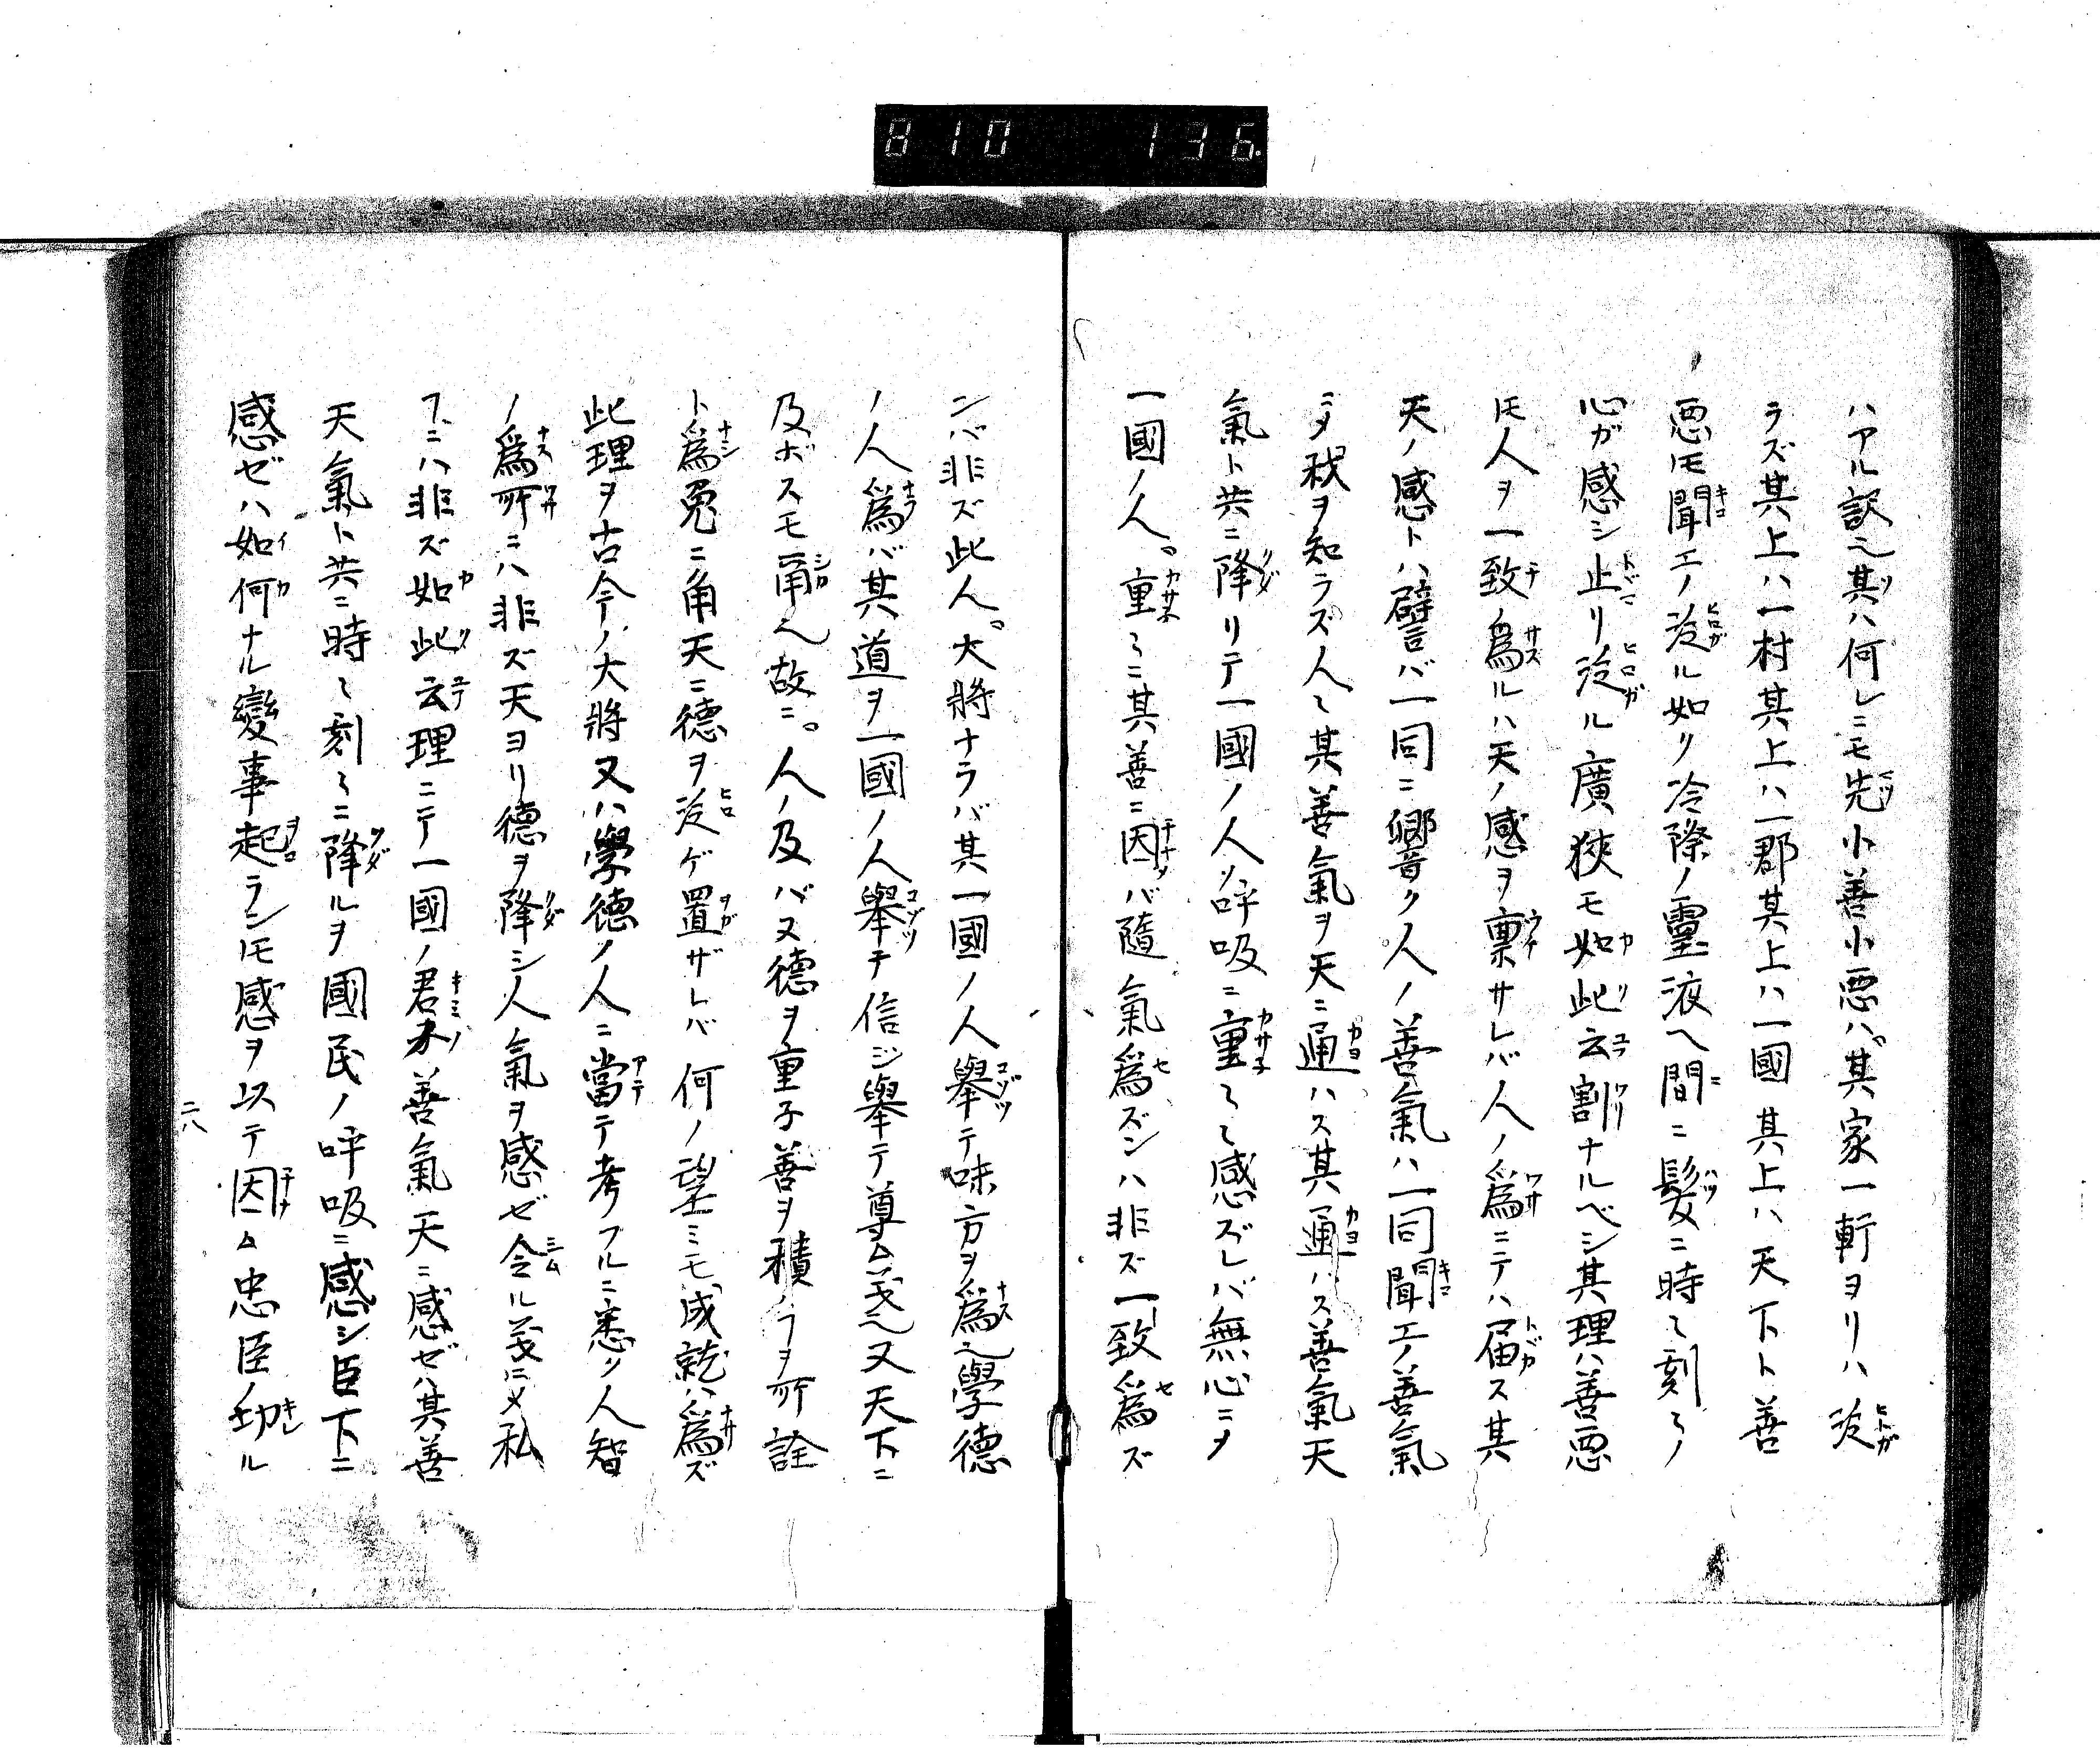 810 136
ハアル訳之其ハ何レニモ先小善小悪ハ。其家一軒ヨリハ泛
ラズ其上ハ一村其上ハ一郡其上ハ一國其上ハ天下ト善
悪モ聞エノ泛ル如リ冷際ノ靈液ヘ間ニ髪ニ時〻刻〻ノ
心ガ感シ止リ泛ル廣狹モ如此云割ナルベシ其理ハ善悪
トモ人ヲ一致ノ爲ルハ天ノ感ヲ稟サレバ人ノ爲ニテハ届ス其
天ノ感トハ譬バ一同ニ響ク人ノ善氣ハ一同聞エノ善氣
ニメ秡ヲ知ラズ人〻其善氣ヲ天ニ通ハス其通ハス善氣天
氣ト共ニ降リテ一國ノ人ノ呼吸ニ重〻感ズレバ無心ニメ
一國ノ人。重〻ニ其善ニ因バ隨氣爲ズンハ非ズ一致爲ズ
ンバ非ズ此人。大將ナラバ其一國ノ人擧テ味方ヲ爲之學德
ノ人爲バ其道ヲ一國ノ人擧テ信ジ擧テ尊ム義之又天下ニ
及ボスモ甬之故ニ。人ノ及バヌ德ヲ重子善ヲ積ノラヲ所詮
ト爲兎ニ角天ニ德ヲ泛ゲ置ザレバ何ノ望ミモ成就ハ爲ズ
此理ヲ古今ノ大將又ハ學德ノ人ニ當テ考フルニ悉ク人智
ノ爲所ニハ非ズ天ヨリ德ヲ降シ人氣ヲ感ゼ令ル義ニメ私
フニハ非ズ如此云理ニテ一國ノ君木善氣天ニ感ゼバ其善
天氣ト共ニ時〻刻〻ニ降ルヲ國民ノ呼吸ニ感シ臣下ニ
感ゼハ如何ナル變事起ラントモ感ヲ以テ因ム忠臣ル
二八